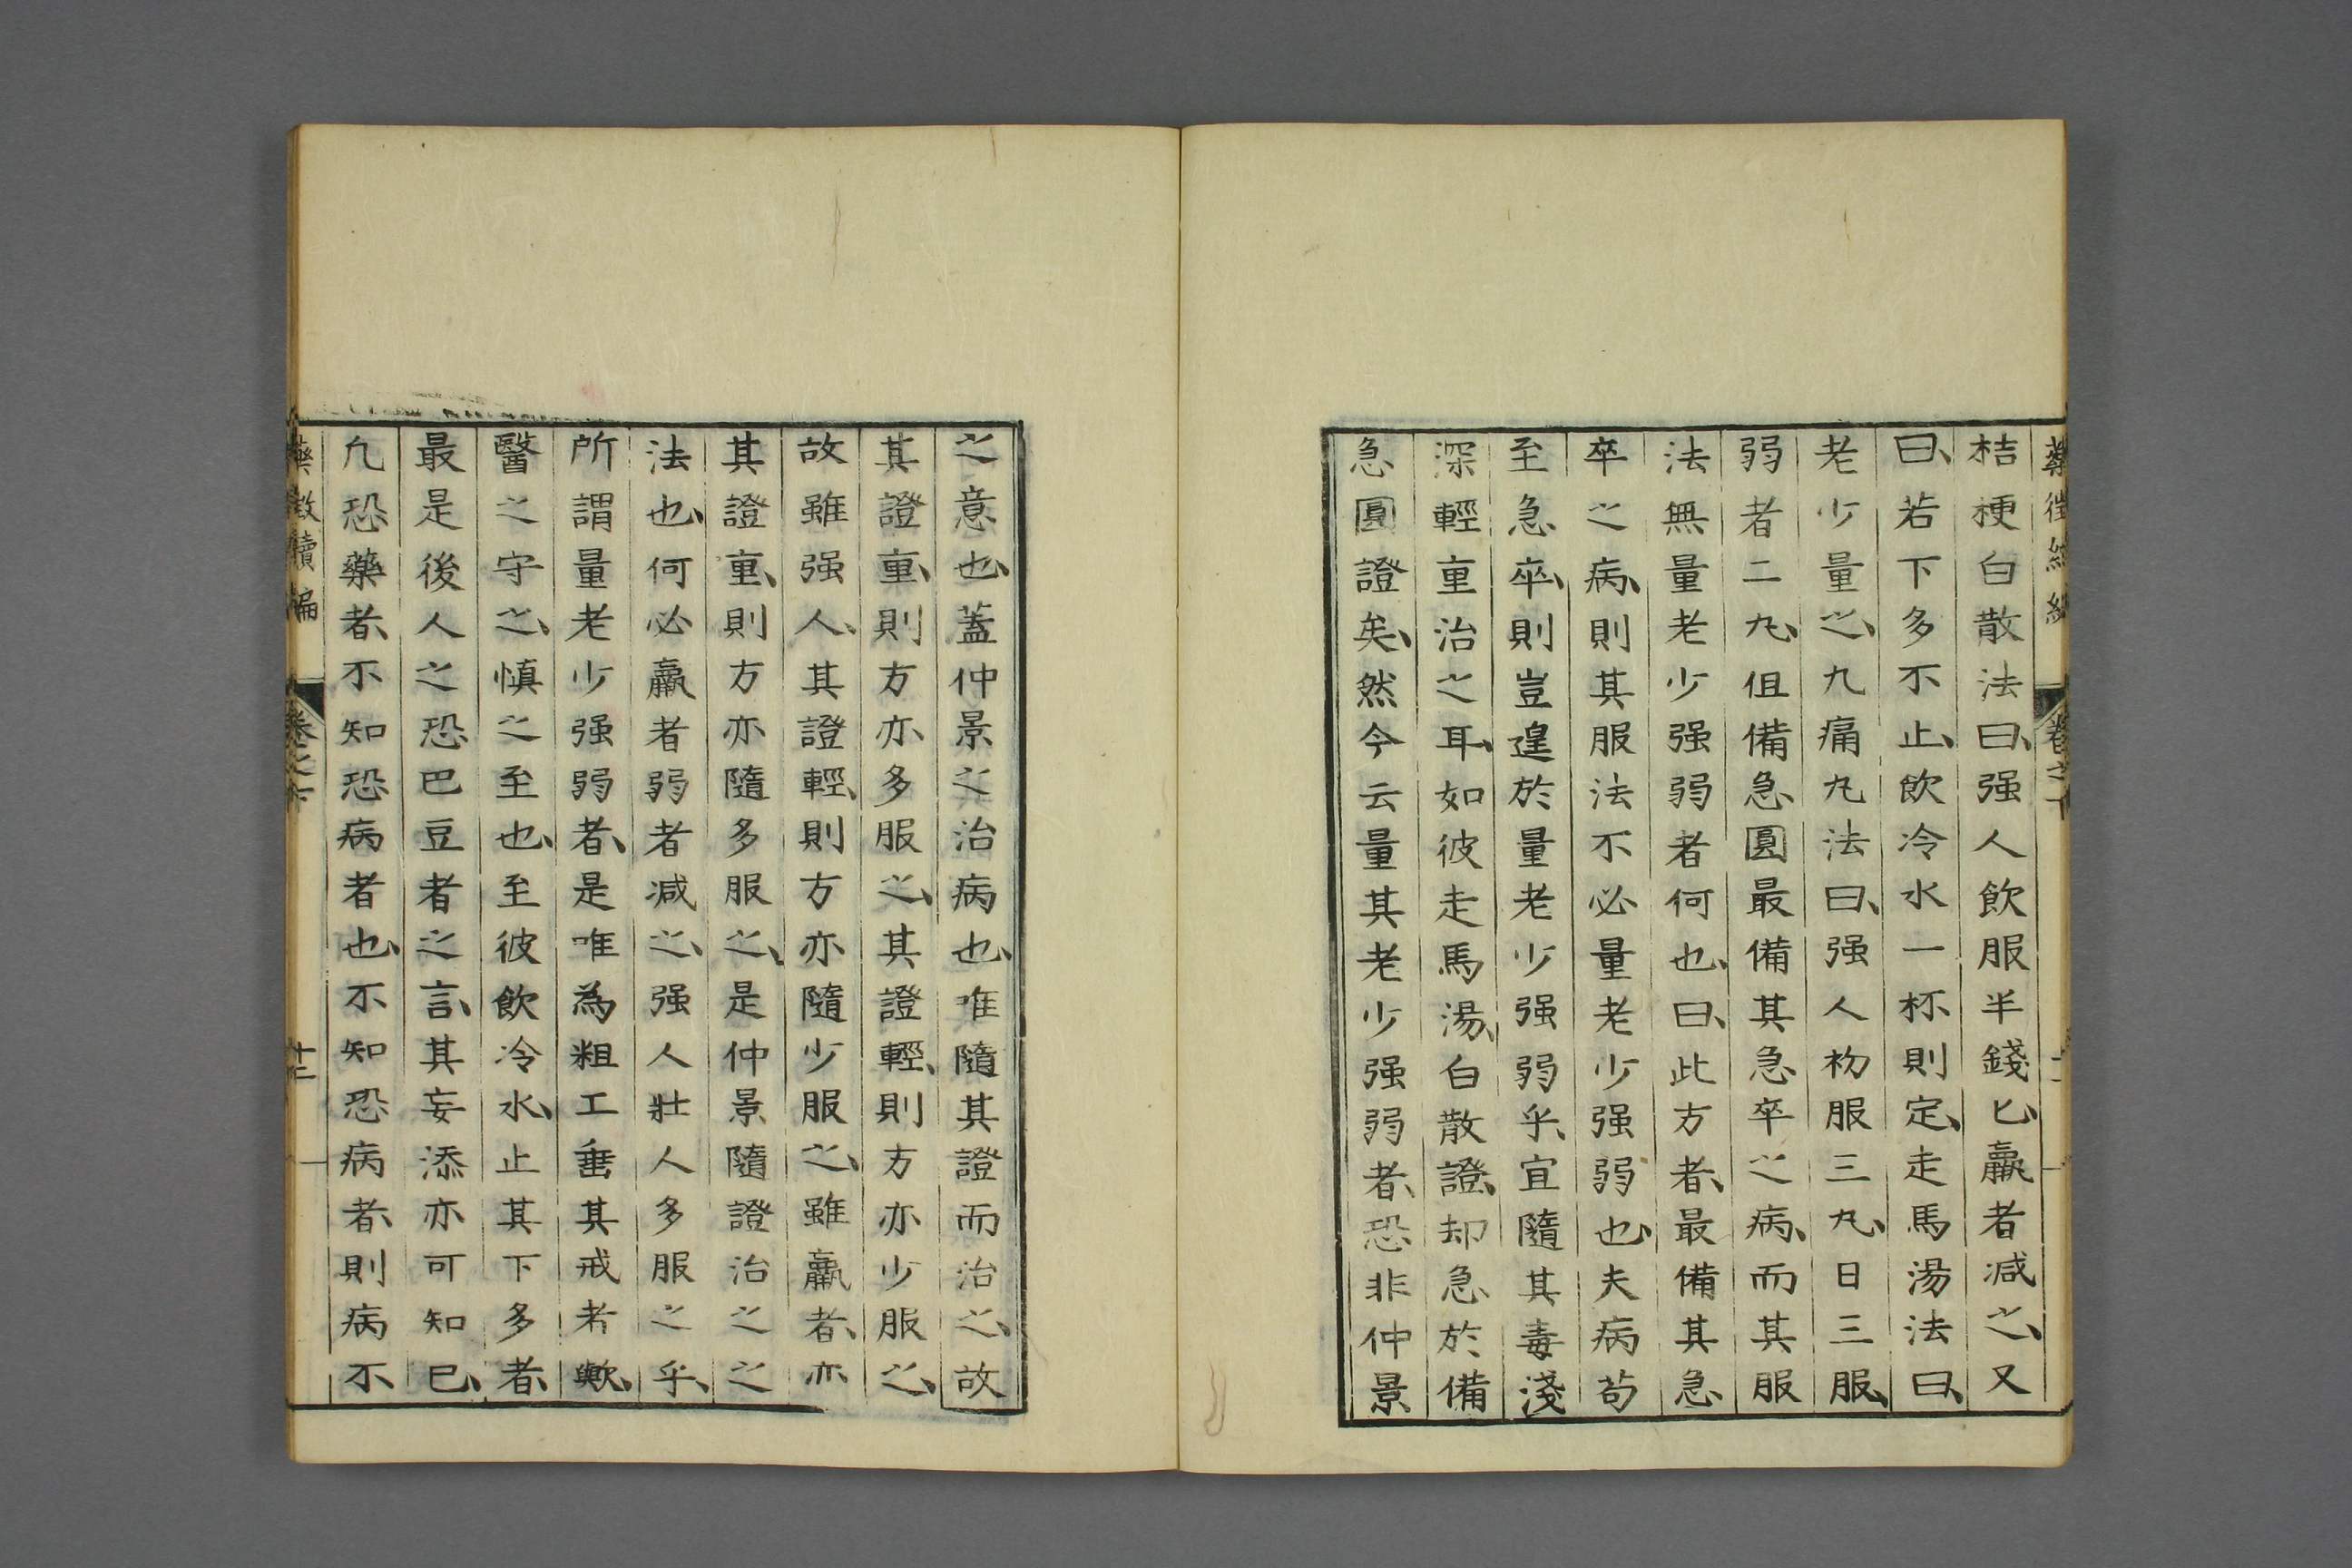 桔梗白散法曰、强人飮服半錢匕、羸者减之、又
曰、若下多不止、飮冷水一杯則定、走馬湯法曰、
老少量之、九痛丸法曰、强人初服三丸、日三服、
弱者二丸、但備急圓最備其急卒之病、而其服
法無量老少强弱者何也、曰、此方者、最備其急
卒之病、則其服法不必量老少强弱也、夫病苟
至急卒、則豈遑於量老少强弱乎、宜隨其毒淺
深輕重治之耳、如彼走馬湯、白散證、却急於備
急圓證矣、然今云量其老少强弱者、恐非仲景
之意也、蓋仲景之治病也、唯隨其證而治之、故
其證重、則方亦多服之、其證輕、則方亦少服之、
故雖强人、其證輕、則方亦隨少服之、雖羸者、亦
其證重、則方亦隨多服之、是仲景隨證治之之
法也、何必羸者弱者减之、强人壯人多服之乎、
所謂量老少强弱者、是唯為粗工垂其戒者歟、
醫之守之、愼之至也、至彼飮冷水、止其下多者、
最是後人之恐巴豆者之言、其妄添亦可知已、
凢恐藥者、不知恐病者也、不知恐病者、則病不
藥徵續編 卷之下 十二